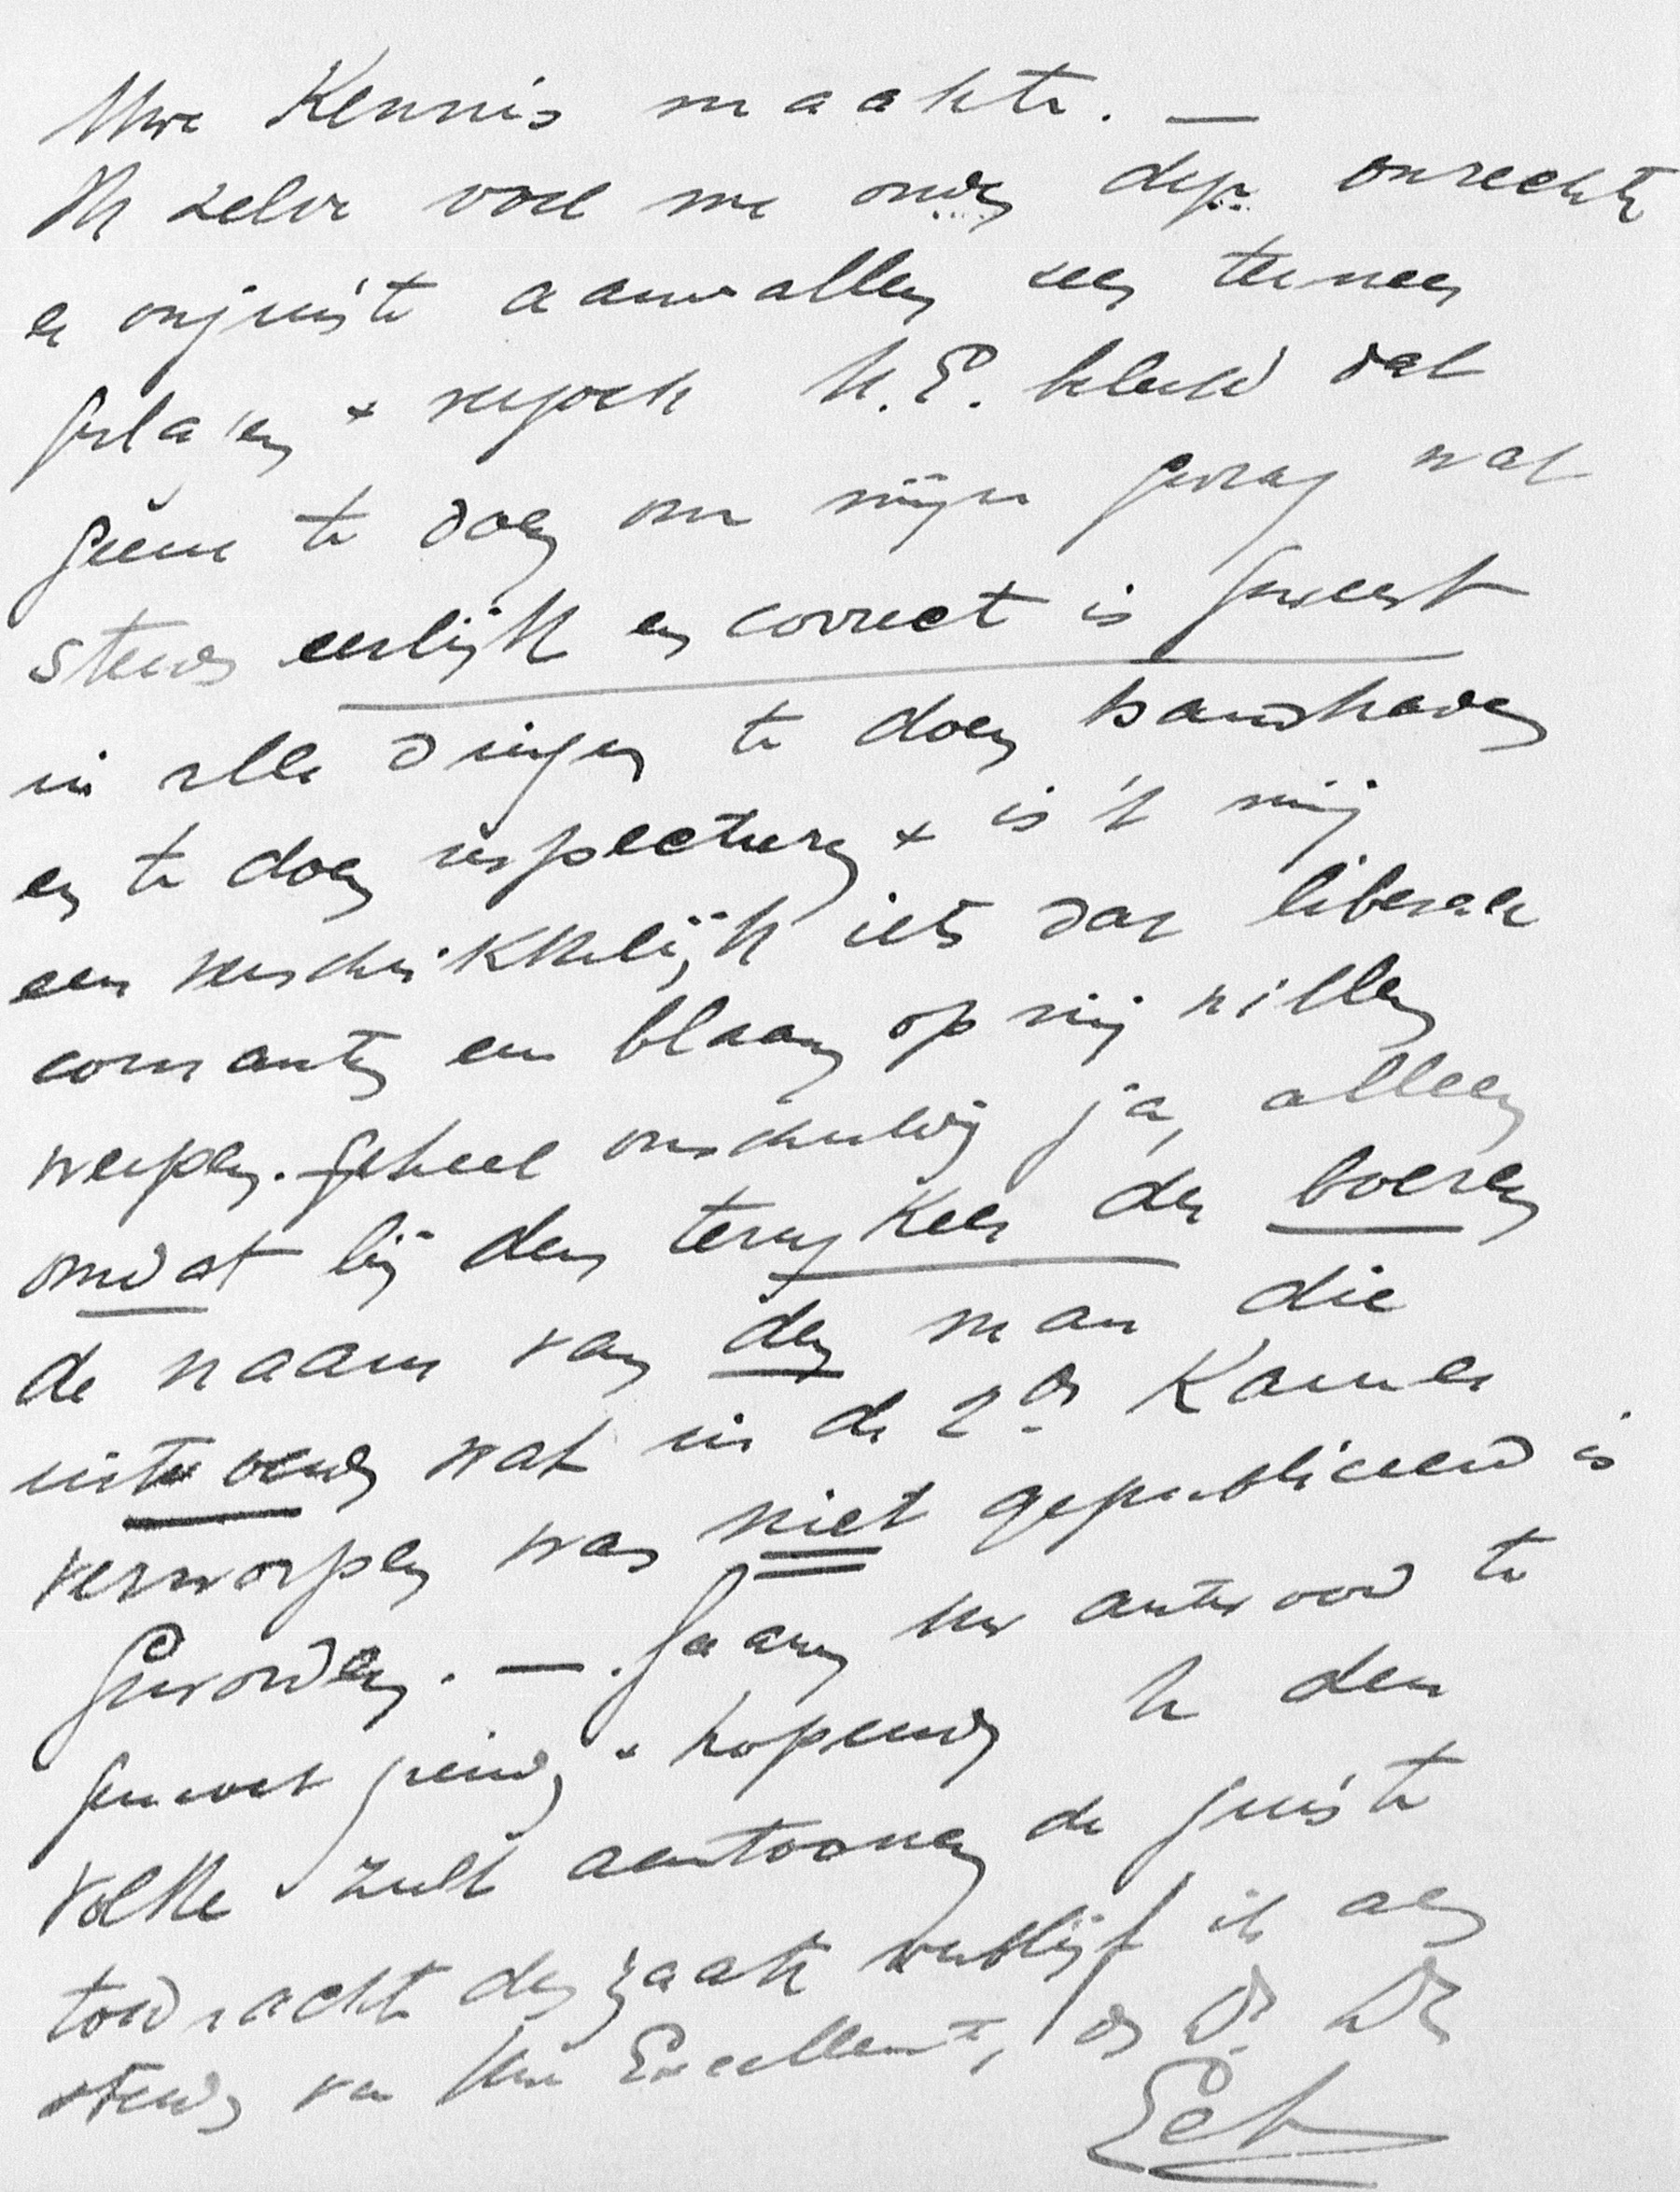 Uwe Kennis maakte. —
Ik zelve voel me onder deze onrechte
en onjuiste aanvallen zeer terneer
geslagen + verzoek U.E. beleefd dat
geene te doen om mijn gedrag wat
steeds eerlijk en correct is geweest
in alle dingen te doen handhaven
en te doen respecteeren + is 't mij
een verschrikkelijk iets dat liberale
couranten een blaam op mij willen
werpen. geheel onschuldig ja, alleen
omdat bij den terugkeer der boeren
de naam van den man die
uitvoerde wat in de 2de Kamer
verworpen was niet gepubliceerd is
geworden. — . Gaarne Uw antwoord te
gemoet ziend, + hopende U den
volke zult aantoonen de juiste
toedracht der zaak verblijf ik als
steeds van Uwe Excellent, de Dr. Dr